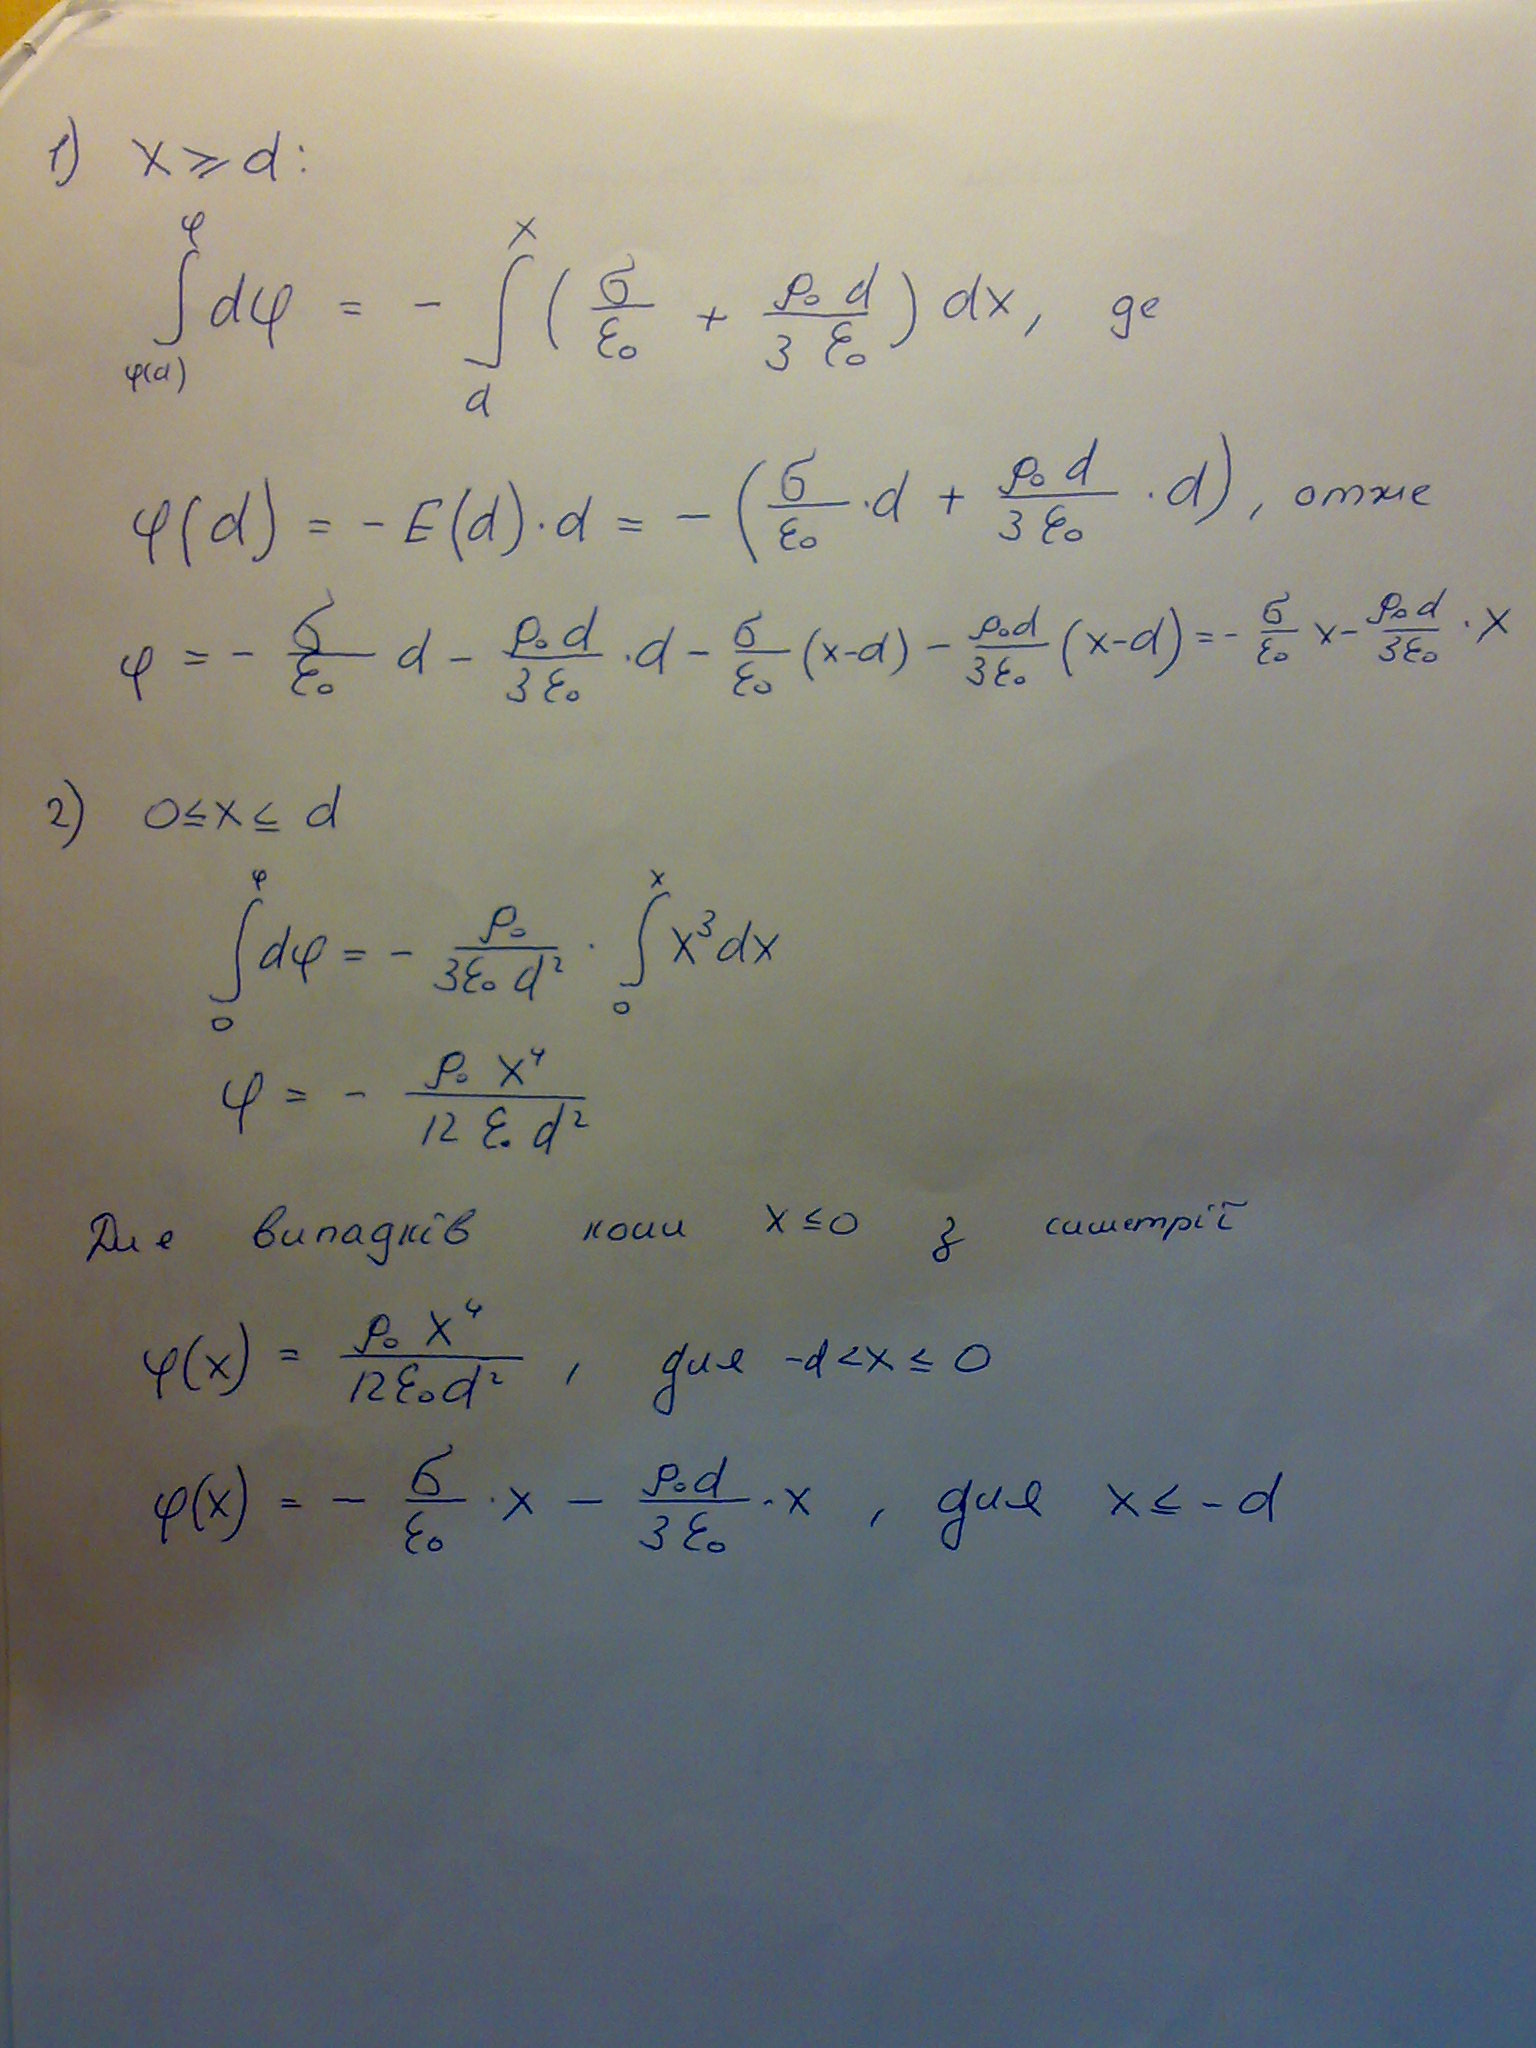 1) x ⩾ d:
∫_{φ(d)}^{φ} dφ = - ∫_{d}^{x} (σ/ε₀ + ρ₀ d/3 ε₀) dx, де
φ(d) = - E(d)·d = - (σ/ε₀ ·d + ρ₀ d/3 ε₀ · d), отже
φ = - σ/ε₀ d - ρ₀ d/3 ε₀ ·d - σ/ε₀ (x-d) - ρ₀d/3ε₀ (x-d) = - σ/ε₀ x - ρ₀d/3ε₀ · x
2) 0 ≤ x ≤ d
∫_{0}^{φ} dφ = - ρ₀/3ε₀ d² · ∫_{0}^{x} x³ dx
φ = - ρ₀ x⁴/12 ε₀ d²
Для випадків коли x ≤ 0 з симетрії
φ(x) = ρ₀ x⁴/12 ε₀ d² , для -d < x ≤ 0
φ(x) = - σ/ε₀ · x - ρ₀ d/3 ε₀ · x , для x ≤ - d